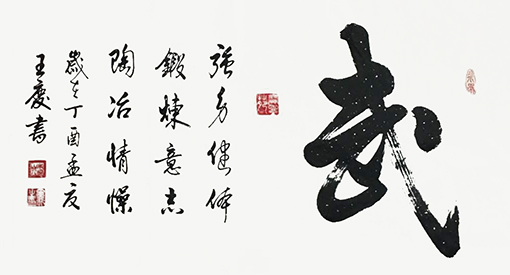 武
强身健体
锻炼意志
陶冶情懆
岁在丁酉孟夏
王庆书